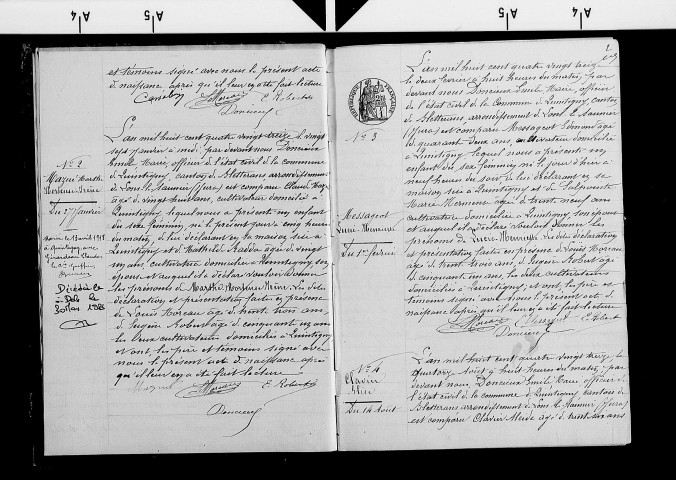 et témoins signé avec nous le présent acte
de naissance après qu'il leur en a été fait lecture
E. Robert
Doncieux
N° 2
Marthe
Hortense Irène
Du 27 Janvier
Décédée
à Dole le
1986
L'an mil huit cent quatre vingt treize le vingt
sept Janvier à midi, par devant nous Doncieux
Emile Marie, officier de l'état civil de la commune
de Quintigny, canton de Bletterans arrondissement
de Lons le Saunier (Jura) est comparu Claude
âgé de vingt huit ans, cultivateur domicilié à
Quintigny, lequel nous a présenté un enfant
du sexe féminin, né le présent jour à cinq heures
du matin, de lui déclarant en sa maison sise à
Quintigny et de Mathilde âgée de vingt
un ans, cultivatrice domiciliée à Quintigny, son
épouse et auquel il a déclaré vouloir donner
les prénoms de Marthe Hortense Irène. Les dites
déclaration et présentation faites en présence
de Louis Moreau âgé de trente trois ans
de Eugène Robert âgé de cinquante un ans
les deux cultivateurs domiciliés à Quintigny
et ont les père et témoins signé avec
nous le présent acte de naissance après
qu'il leur en a été fait lecture
E. Robert
Doncieux
N° 3
Messageot
Lucie Hermence
Du 1er Février
L'an mil huit cent quatre vingt treize
le deux Février à huit heures du matin, par
devant nous Doncieux Emile Marie officier
de l'état civil de la commune de Quintigny, canton
de Bletterans arrondissement de Lons le Saunier
(Jura) est comparu Messageot Edmond âgé
de quarante deux ans, cultivateur domicilié
à Quintigny lequel nous a présenté un
enfant du sexe féminin né le jour d'hier à
neuf heures du soir de lui déclarant en sa
maison sise à Quintigny et de
Marie Hermence âgée de trente neuf ans
cultivatrice domiciliée à Quintigny, son épouse
et auquel il a déclaré vouloir donner les
prénoms de Lucie Hermence. Les dites déclaration
et présentation faites en présence de Louis Moreau
âgé de trente trois ans, de Eugène Robert âgé de
cinquante un ans, les deux cultivateurs
domiciliés à Quintigny, et ont les père et
témoins signé avec nous le présent acte de
naissance après qu'il leur en a été fait lecture
E. Robert
Doncieux
N° 4
Clavier
Du 14 Août
L'an mil huit cent quatre vingt treize le
quatorze Août à huit heures du matin, par
devant nous, Doncieux Emile Marie, officier de
l'état civil de la commune de Quintigny canton de
Bletterans arrondissement de Lons le Saunier (Jura)
est comparu Clavier âgé de trente six ans